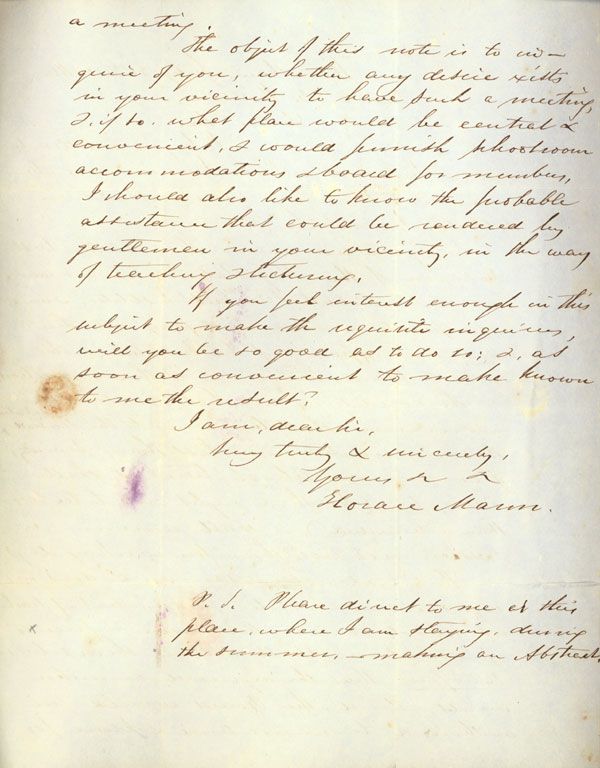 a meeting.
The object of this note is to in-
quire of you, whether any desire exists
in your vicinity to have such a meeting,
&, if so. what place would be central &
convenient, & would furnish schoolroom
accommodations & board for members,
I should also like to know the probable
assistance that could be rendered by
gentlemen in your vicinity, in the way
of teaching & lecturing.
If you feel interest enough in this
subject to make the requisite inquiries,
will you be so good as to do so; &, as
soon as convenient to make known
to me the result?
I am, dear Sir,
Very truly & sincerely,
Yours &c &c
Horace Mann.
P.S. Please direct to me at this
place, where I am staying, during
the summer, making an Abstract.